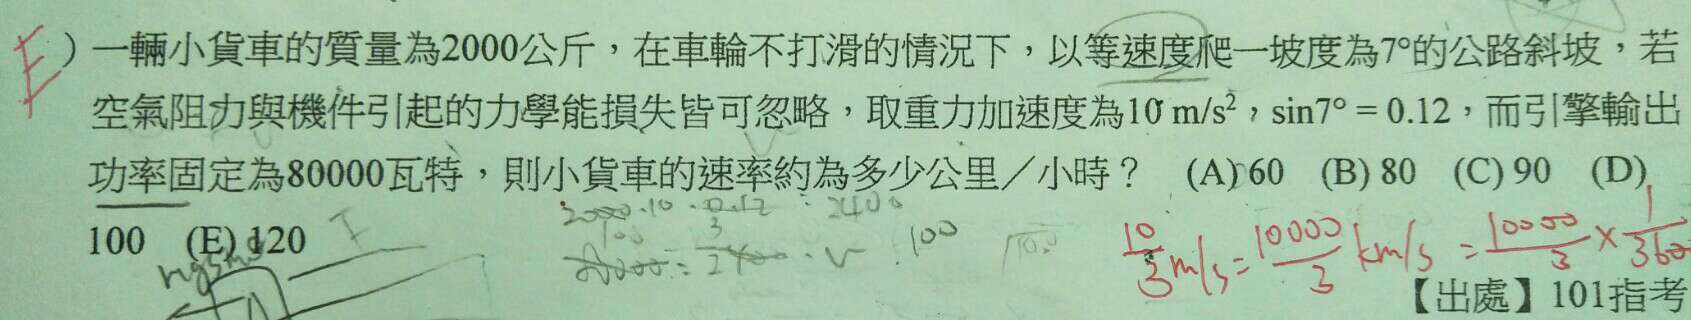 E
)一輛小貨車的質量為2000公斤，在車輪不打滑的情況下，以等速度爬一坡度為7°的公路斜坡，若
空氣阻力與機件引起的力學能損失皆可忽略，取重力加速度為10 m/s²，sin7° = 0.12，而引擎輸出
功率固定為80000瓦特，則小貨車的速率約為多少公里／小時？ (A) 60 (B) 80 (C) 90 (D)
100 (E) 120
2000·10·0.12 = 2400
10/3 m/s = 10000/3 km/s = 10000/3 × 1/3600
【出處】101指考